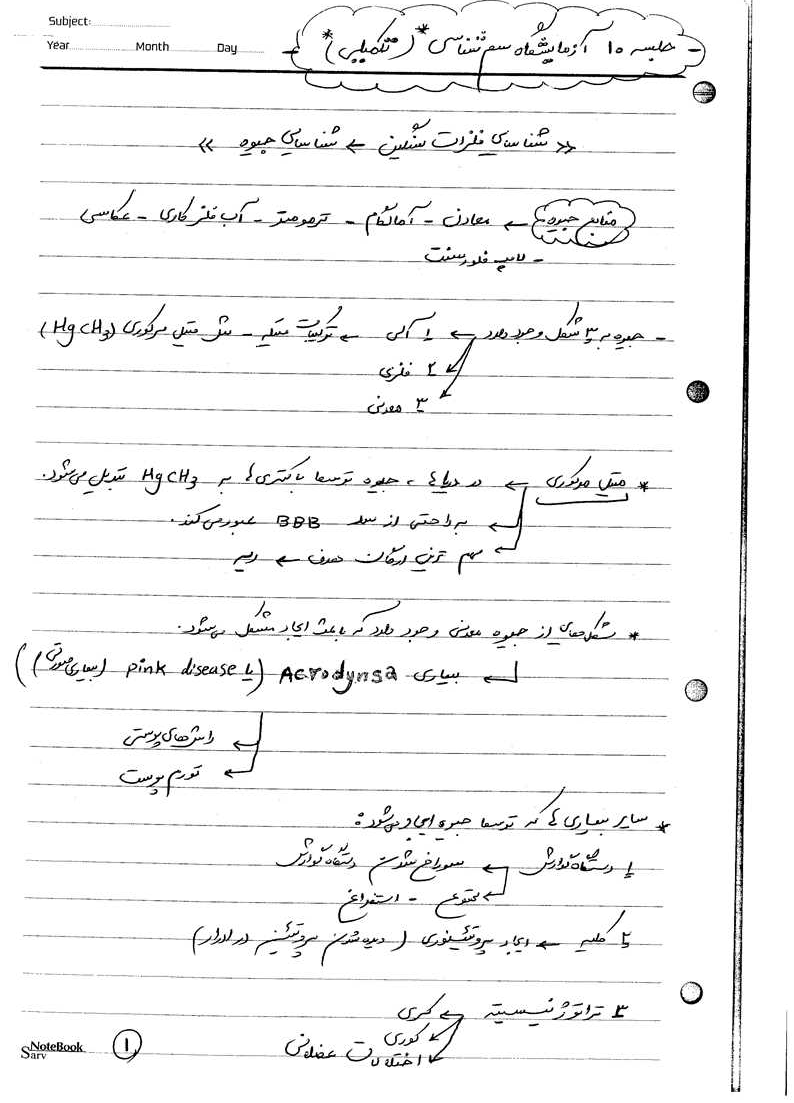 Subject:
Year Month Day
- جلسه ۱۰ آزمایشگاه سم شناسی * (تکمیلی) * -
« شناسایی فلزات سنگین ← شناسایی جیوه »
منابع جیوه ← معادن - آمالگام - ترمومتر - آب فلزکاری - عکاسی
- لامپ فلورسنت
- جیوه به ۳ شکل وجود دارد ← ۱ آلی ← ترکیبات متیله - مثل متیل مرکوری (HgCH3)
← ۲ فلزی
← ۳ معدنی
* متیل مرکوری ← در دریاها ، جیوه توسط باکتری ها به HgCH3 تبدیل می شود.
← به راحتی از سد BBB عبور می کند.
← مهم ترین ارگان هدف ← ریه
* شکل هایی از جیوه معدنی وجود دارد که باعث ایجاد مشکل می شود.
← بیماری Acrodynsa (یا pink disease (بیماری صورتی))
← راش های پوستی
← تورم پوست
* سایر بیماری ها که توسط جیوه ایجاد می شود:
۱ دستگاه گوارش ← سوراخ شدن دستگاه گوارش
← تهوع - استفراغ
۲ کلیه ← ایجاد پروتئینوری (دیده شدن پروتئین در ادرار)
۳ تراتوژنیسیته ← کری
← کوری
← اختلالات عضلانی
NoteBook
Sarv
۱